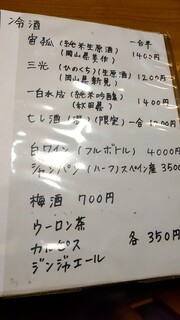 冷酒
宙狐(純米生原酒) 一合半
(岡山県美作) 1400円
三光(ひのくち)(生原酒)
(岡山県新見) 1200円
一白水成(純米吟醸)
(秋田県) 1400円
(限定)一合
白ワイン(フルボトル) 4000円
シャンパン(ハーフ)スペイン産 3500
梅酒 700円
ウーロン茶
カルピス 各350円
ジンジャエール